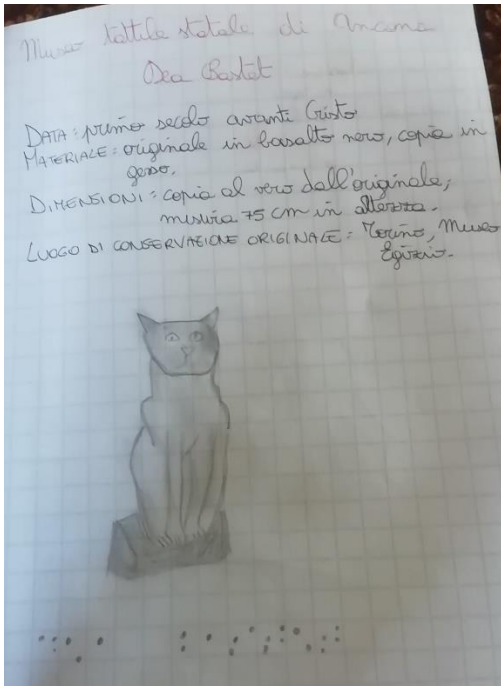 Museo tattile statale di Ancona
Dea Bastet
DATA: primo secolo avanti Cristo
MATERIALE: originale in basalto nero, copia in
gesso.
DIMENSIONI: copia al vero dall'originale,
misura 75 cm in altezza.
LUOGO DI CONSERVAZIONE ORIGINALE: Torino, Museo
Egizio.